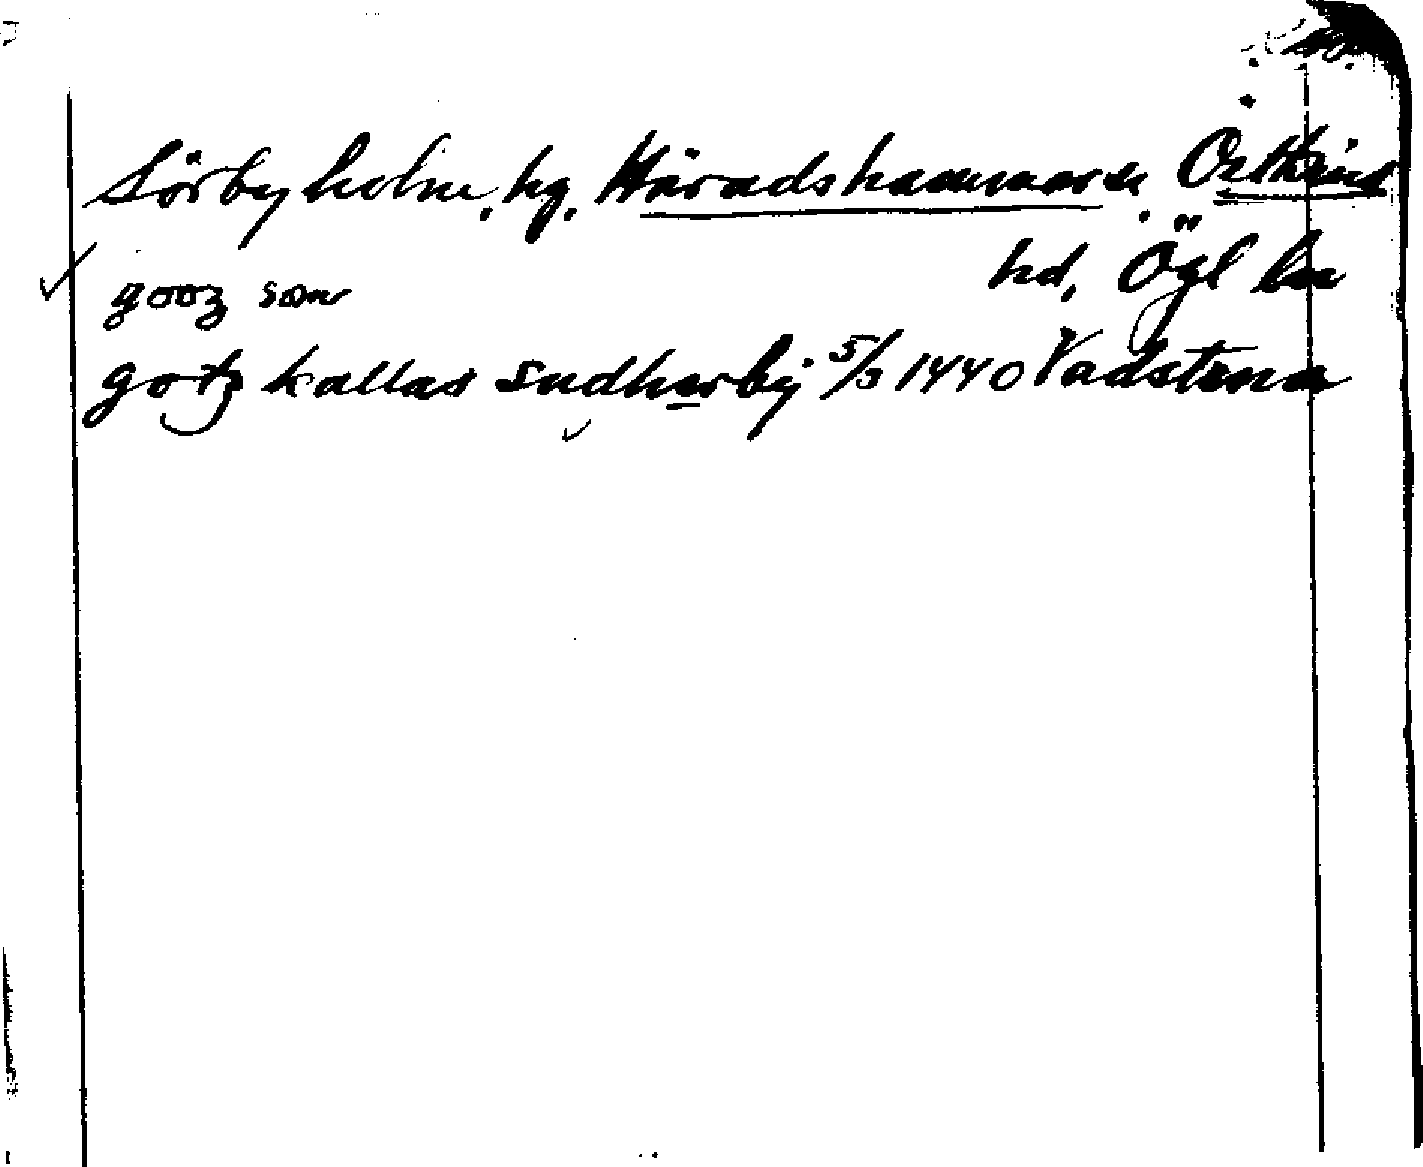 Sörbyholm, hg. Häradshammar sn Östkind
hd, Ögl ln
gooz som
gotz kallas sudherby 5/3 1440 Vadstena